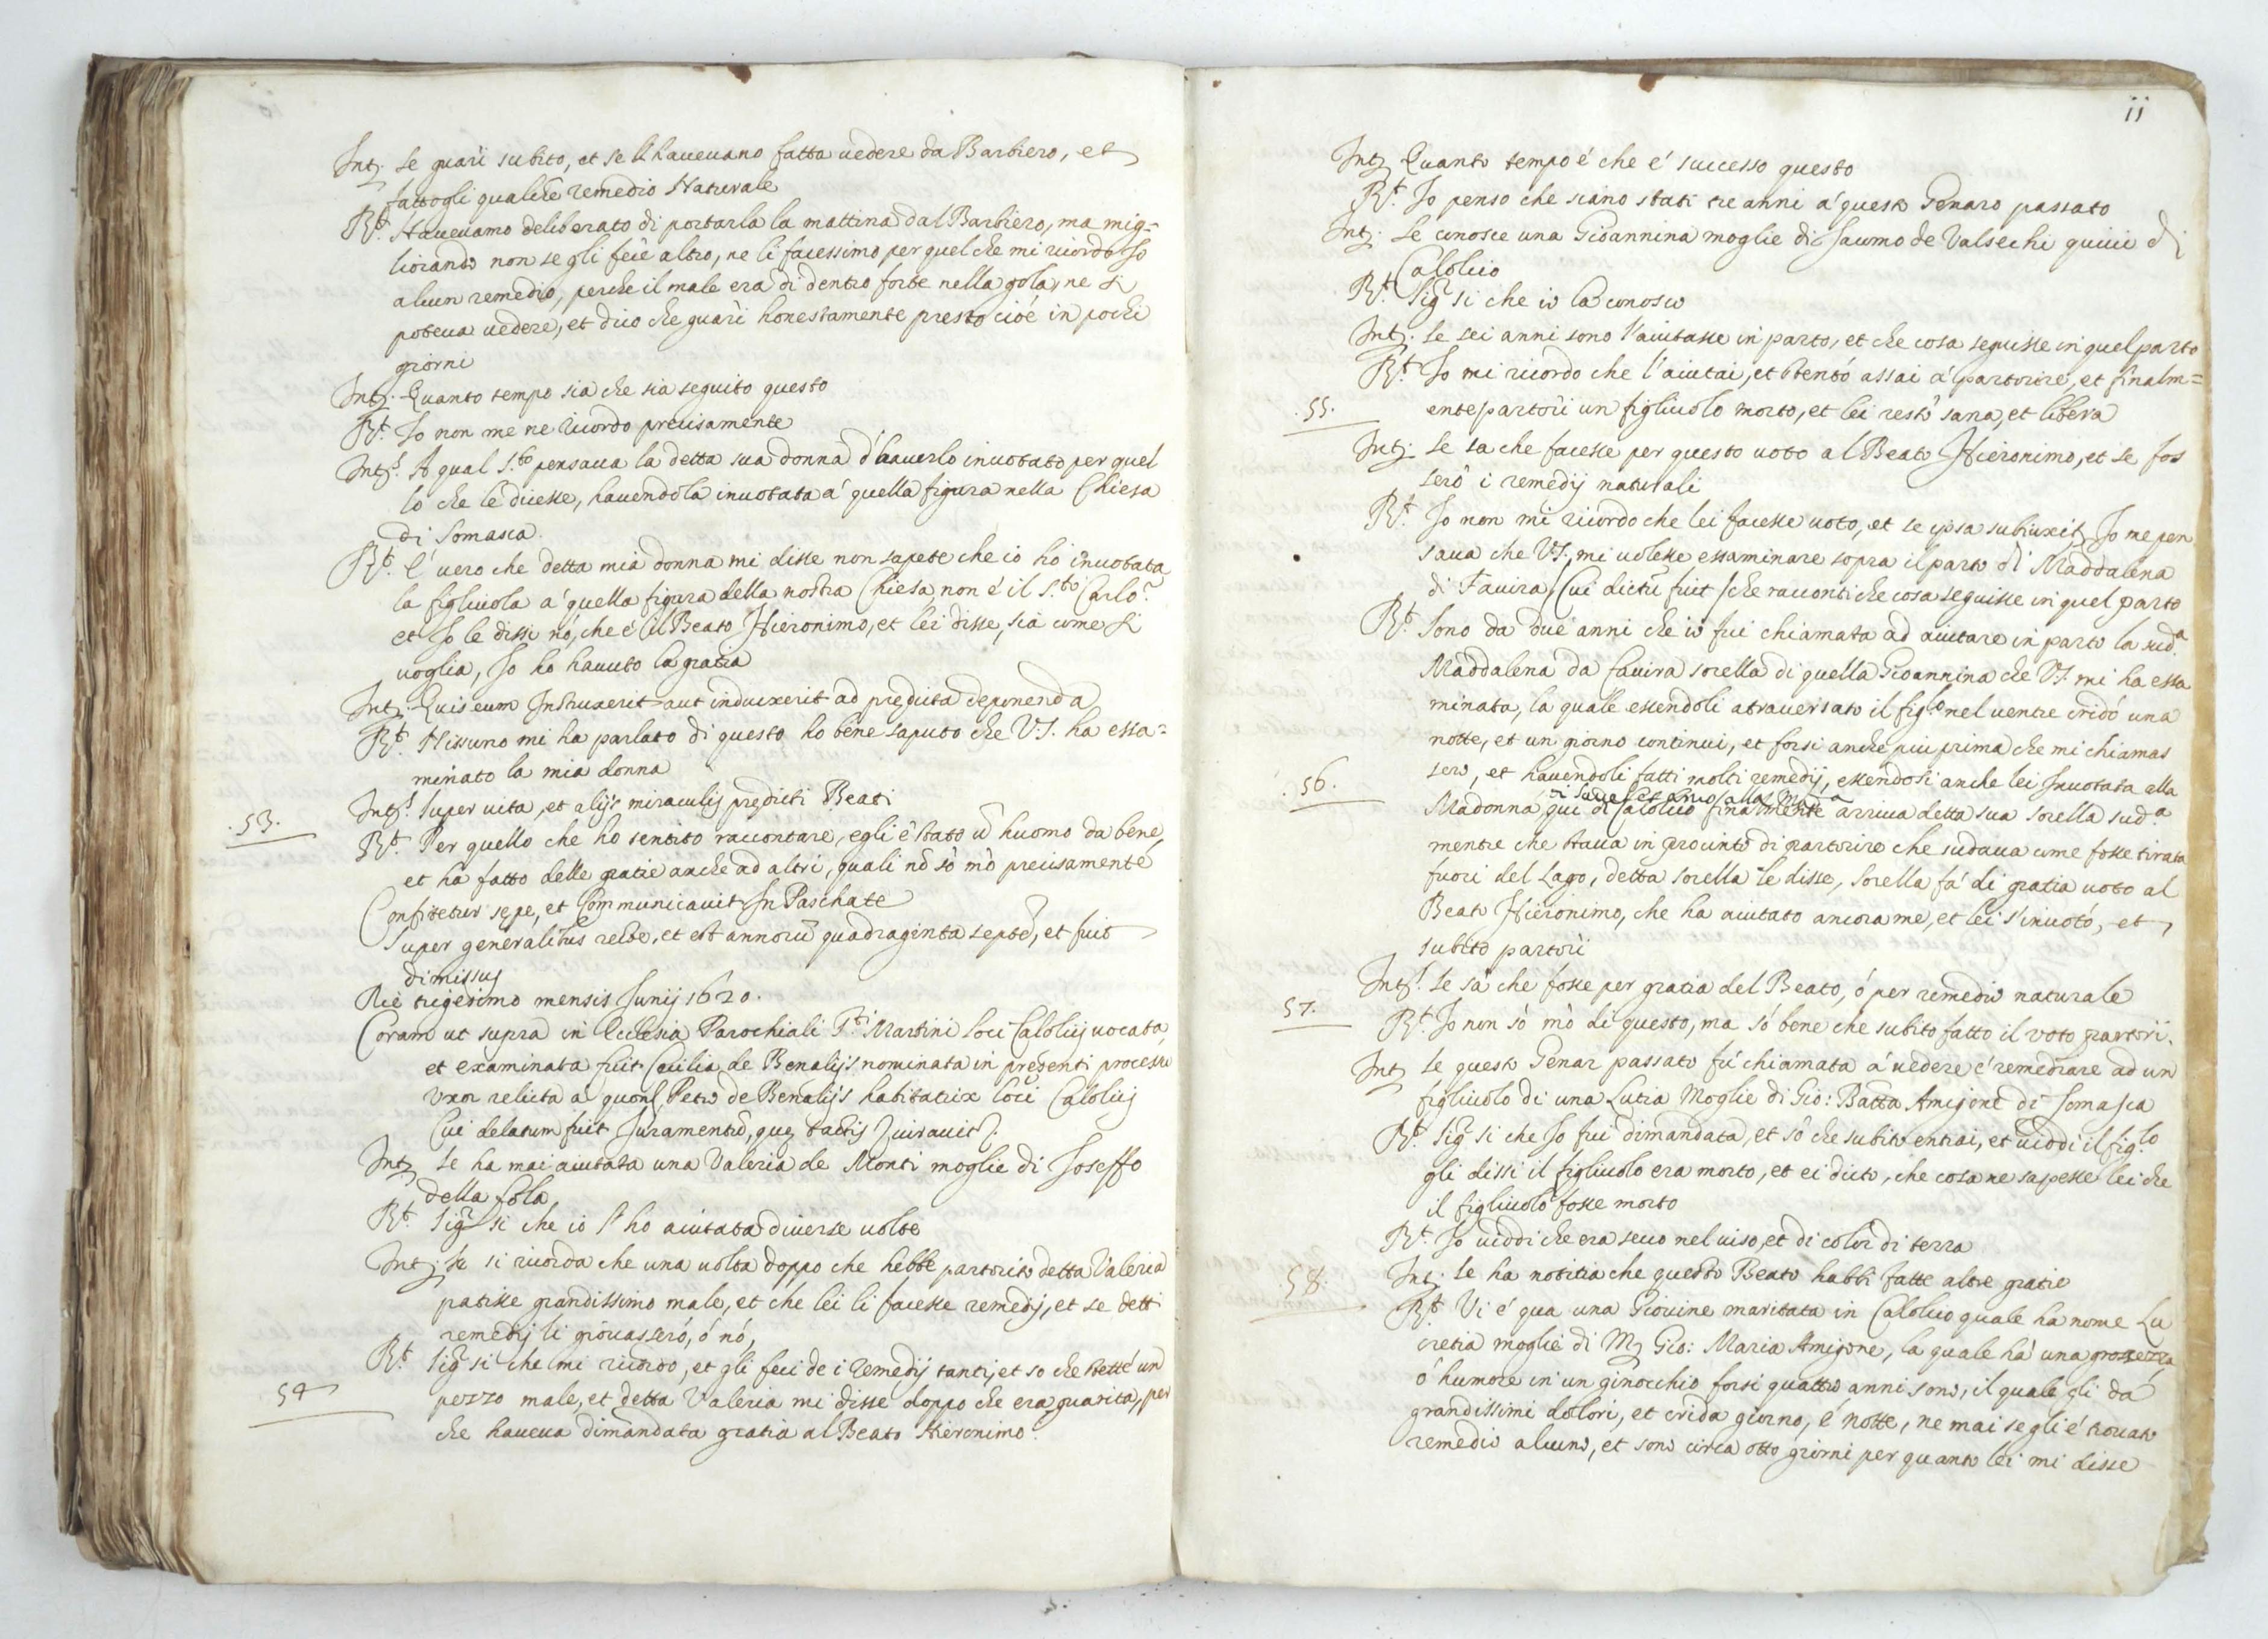 Int. se guarì subito, et se l'havevano fatta vedere da Barbiero, et
fattogli qualche remedio Naturale
Rt. Havevamo deliberato di portarla la mattina dal Barbiero, ma mig=
liorando non se gli fece altro, ne li facessimo per quel che mi ricordo Io
alcun remedio, perche il male era di dentro forte nella gola, ne si
poteva vedere, et dico che guarì honestamente presto cioé in pochi
giorni
Int. Quanto tempo sia che sia seguito questo
Rt. Io non me ne ricordo precisamente
Int. A qual S.to pensava la detta sua donna d'haverlo invotato per quel
lo che le dicesse, havendola invotata a' quella figura nella Chiesa
di Somasca
Rt. É vero che detta mia donna mi disse non sapete che io hò invotata
la figliuola a' quella figura della nostra Chiesa, non é il S.to Carlo?
et Io le dissi nó, che é il Beato Hieronimo, et lei disse, sia come si
voglia, Io ho havuto la gratia
Int. Quis eum Instruxerit aut induxerit ad predicta deponenda
Rt. Nissuno mi ha parlato di questo ho bene saputo che V.S. ha essa=
minato la mia donna
Int. Super vita, et alijs miraculis predicti Beati
.53.
Rt. Per quello che ho sentito raccontare, egli é stato ū huomo da bene,
et ha fatto delle gratie anche ad altri, quali nō sò mò precisamente
Confitetur sepe, et Communicavit In Paschate
Super generalibus recte, et est annorū quadraginta septē, et fuit
dimissus
Die trigesimo mensis Junij 1620.
Coram ut supra in Ecclesia Parochiali S.ti Martini loci Calolcij vocata,
et examinata fuit Cecilia de Benalijs nominata in presenti processu
Uxor relicta a quon. Petro de Benalijs habitatrix loci Calolcij
Cui delatum fuit Juramentū, que tactis Juravit
Int. Se ha mai aiutata una Valeria de Monti moglie di Ioseffo
della Sola
Rt. Sig.r si che io l'ho aiutata diverse volte
Int. Se si ricorda che una volta doppo che hebbe partorito detta Valeria
patisse grandissimo male, et che lei li facesse remedij, et se detti
remedij li giovasseró, ó nó,
Rt. Sig.r si che mi ricordo, et gli feci de i remedij tanti, et so che stette un
54
pezzo male, et detta Valeria mi disse doppo che era guarita, per
che haveva dimandata gratia al Beato Hieronimo.
ii
Int. Quanto tempo é che é successo questo
Rt. Io penso che siano stati tre anni a' questo Genaro passato
Int. Se conosce una Gioannina moglie di Saumo de Valsechi quivi di
Calolcio
Rt. Sig.r si che io la conosco
Int. Se sei anni sono l'aiutasse in parto, et che cosa seguisse in quel parto
Rt. Io mi ricordo che l'aiutai, et stentó assai a' partorire, et finalm=
.55.
ente partorì un figliuolo morto, et lei restò sana, et libera
Int. Se sa che facesse per questo voto al Beato Hieronimo, et se fos
serò i remedij naturali
Rt. Io non mi ricordo che lei facesse voto, et se ipsa subiuxit, Io me pen
sava che V.S. mi volesse essaminare sopra il parto di Maddalena
di Favira, Cui dictū fuit che racconti che cosa seguisse in quel parto
Rt. Sono da due anni che io fui chiamata ad aiutare in parto la sud.a
Maddalena da Favira sorella di quella Gioannina che V.S. mi ha essa
minata, la quale essendoli atraversato il fig.lo nel ventre cridó una
notte, et un giorno continui, et forsi anche piu prima che mi chiamas
sero, et havendoli fatti molti remedij, essendosi anche lei Invotata alla
.56.
Madonna qui di Calolcio finalmente arriva detta sua sorella sud.a
mentre che stava in procinto di partorire che sudava come fosse tirata
fuori del Lago, detta sorella le disse, Sorella fa' di gratia voto al
Beato Hieronimo, che ha aiutato ancora me, et lei s'invotó, et
subito partorì
Int. Se sa che fosse per gratia del Beato, ó per remedio naturale
57.
Rt. Io non só mò di questo, ma só bene che subito fatto il voto partorì.
Int. Se questo Genar passato fú chiamata á vedere é remediare ad un
figliuolo di una Lucia Moglie di Gio: Batta Amigone di Somasca
Rt. Sig.r si che Io fui dimandata, et só che subito entrai, et viddi il fig.lo
gli dissi il figliuolo era morto, et ei dicto, che cosa ne sapesse lei che
il figliuolo fosse morto
Rt. Io viddi che era secco nel viso, et di color di terra
58.
Int. Se ha notitia che questo Beato habbi fatte altre gratie
Rt. Vi é qua una Giovine maritata in Calolcio quale ha nome Lu
cretia moglie di M. Gio: Maria Amigone, la quale há una grossezza
ó humore in un ginocchio forsi quattro anni sono, il quale gli dá
grandissimi dolori, et crida giorno, é notte, ne mai se gli é trovato
remedio alcuno, et sono circa otto giorni per quanto lei mi disse